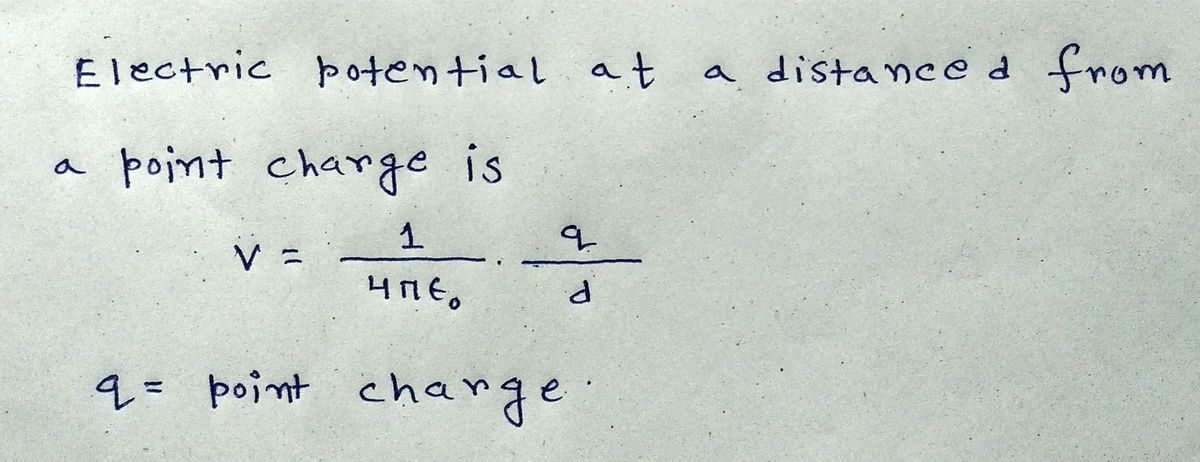 Electric potential at a distance d from
a point charge is
V = 1/4πϵ₀ · q/d
q = point charge.